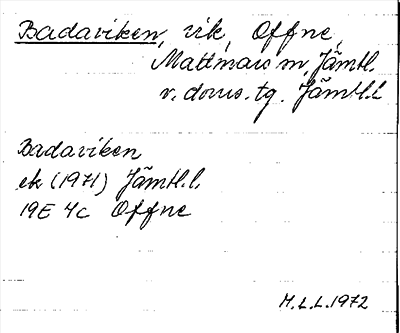 Badaviken, vik, Offne,
Mattmars sn, Jämtl.
v. doms. tg. Jämtl.l.
Badaviken
ek (1971) Jämtl.l.
19E 4c Offne
M.L.L. 1972